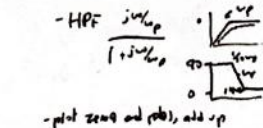 - HPF jω/ωp
1+jω/ωp
0 ωp
90
0
- plot zeros and poles, add up